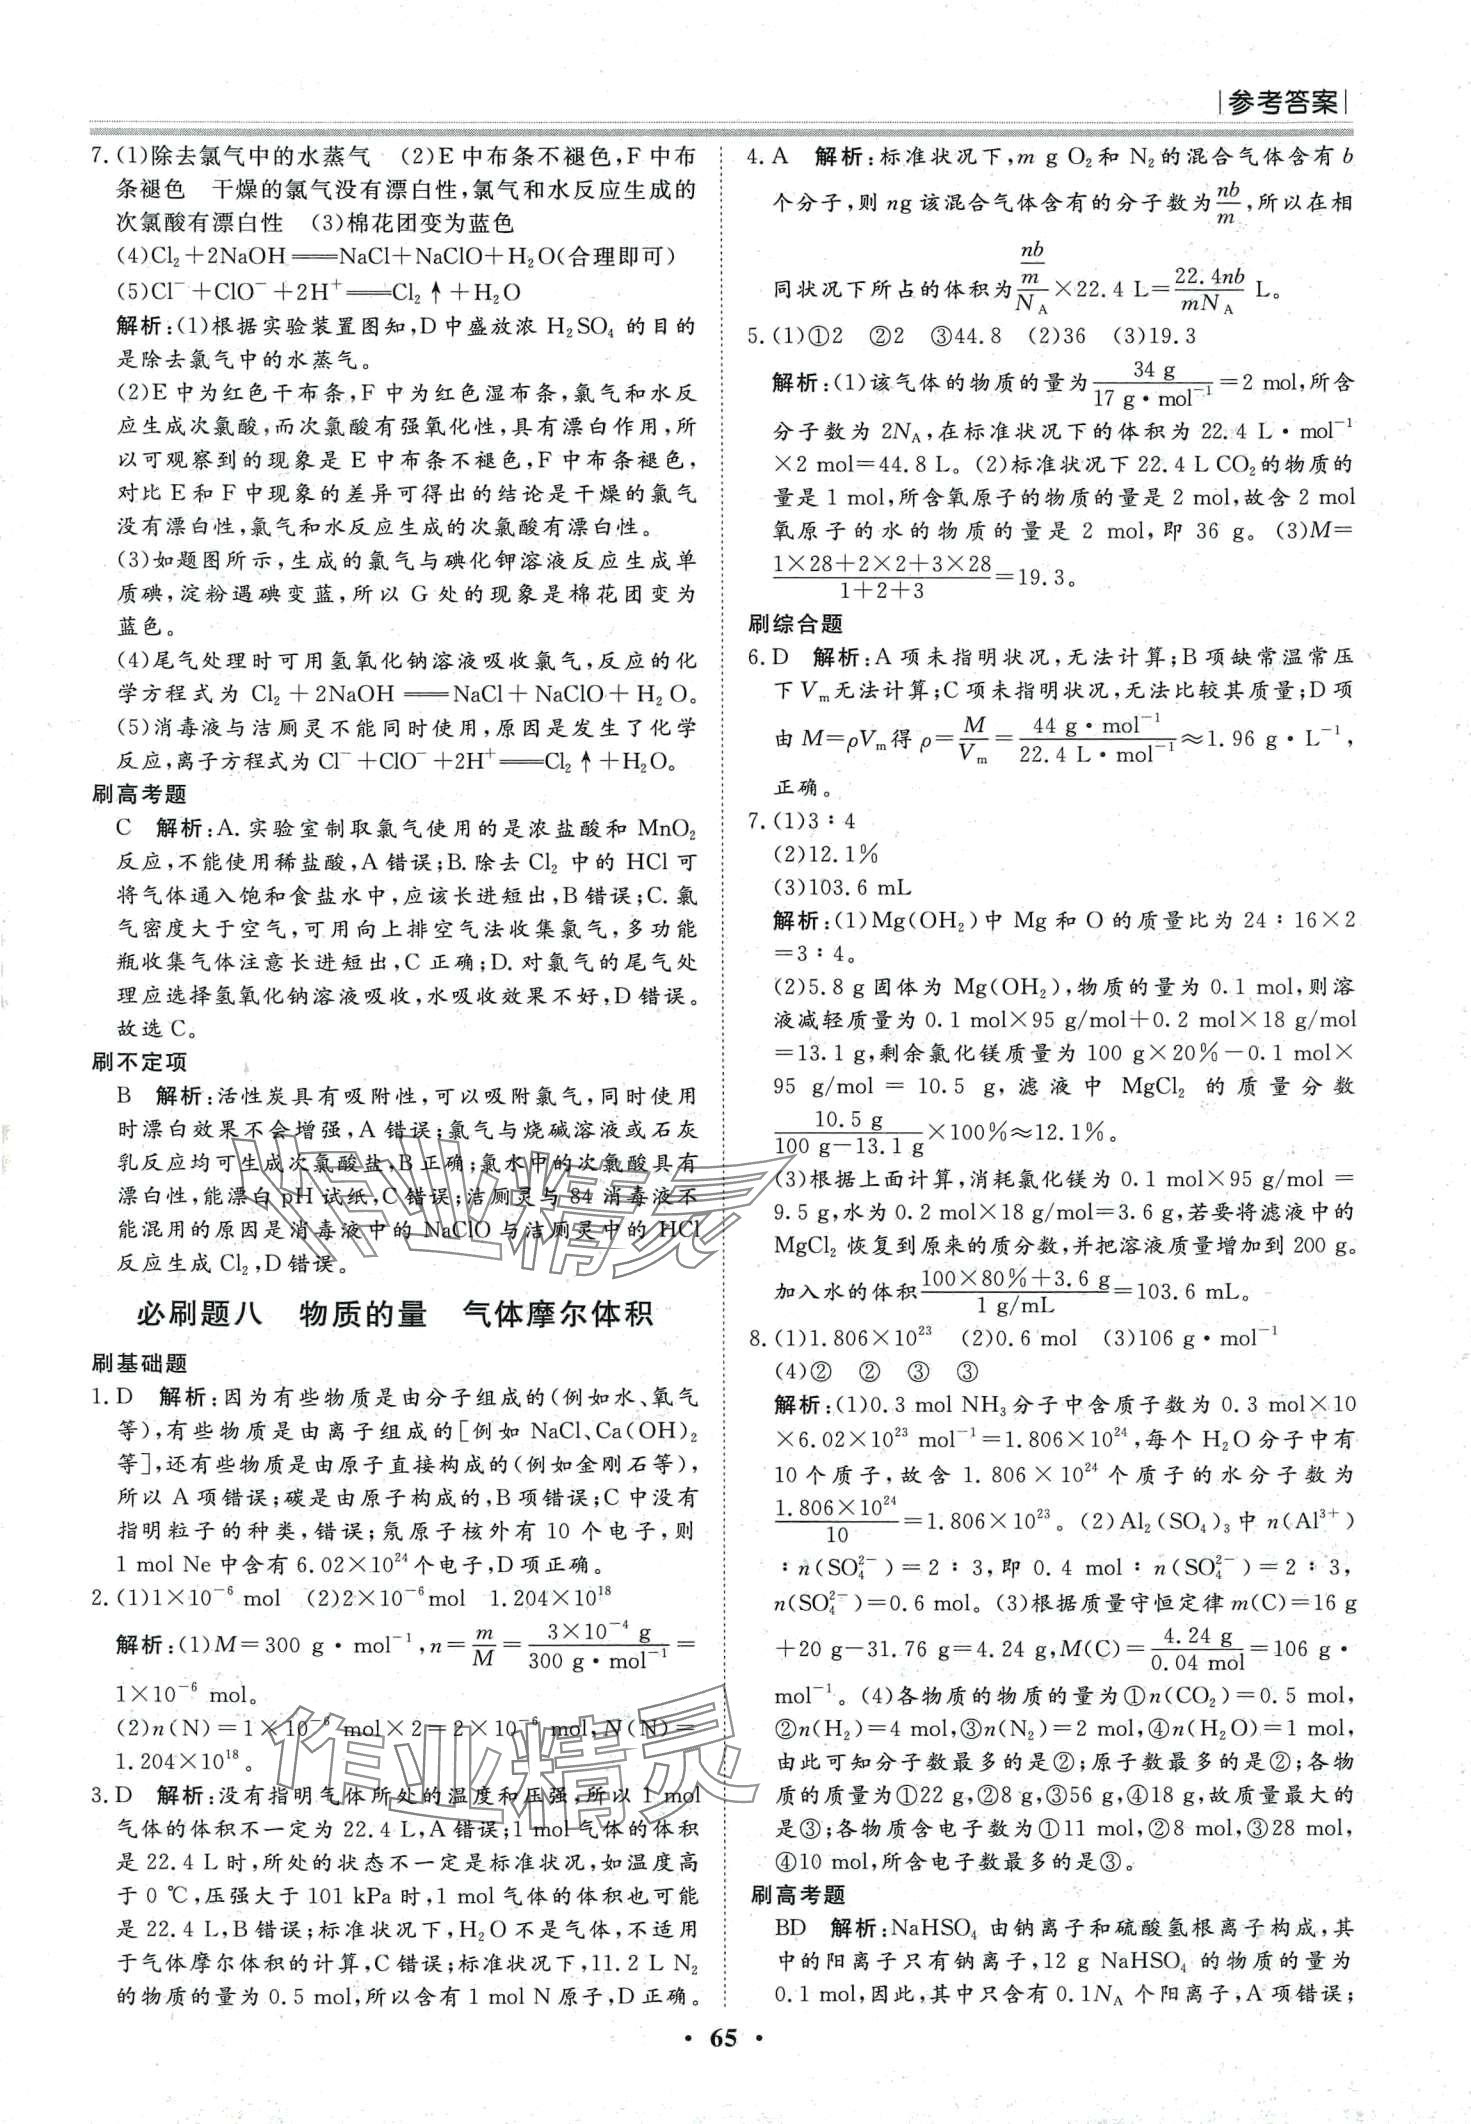 参考答案
7.(1)除去氯气中的水蒸气　(2)E中布条不褪色,F中布
条褪色　干燥的氯气没有漂白性,氯气和水反应生成的
次氯酸有漂白性　(3)棉花团变为蓝色
(4)Cl₂+2NaOH══NaCl+NaClO+H₂O(合理即可)
(5)Cl⁻+ClO⁻+2H⁺══Cl₂↑+H₂O
解析:(1)根据实验装置图知,D中盛放浓 H₂SO₄ 的目的
是除去氯气中的水蒸气。
(2)E中为红色干布条,F中为红色湿布条,氯气和水反
应生成次氯酸,而次氯酸有强氧化性,具有漂白作用,所
以可观察到的现象是 E 中布条不褪色,F中布条褪色,
对比 E 和 F 中现象的差异可得出的结论是干燥的氯气
没有漂白性,氯气和水反应生成的次氯酸有漂白性。
(3)如题图所示,生成的氯气与碘化钾溶液反应生成单
质碘,淀粉遇碘变蓝,所以 G 处的现象是棉花团变为
蓝色。
(4)尾气处理时可用氢氧化钠溶液吸收氯气,反应的化
学方程式为 Cl₂+2NaOH══NaCl+NaClO+H₂O。
(5)消毒液与洁厕灵不能同时使用,原因是发生了化学
反应,离子方程式为 Cl⁻+ClO⁻+2H⁺══Cl₂↑+H₂O。
刷高考题
C　解析:A.实验室制取氯气使用的是浓盐酸和 MnO₂
反应,不能使用稀盐酸,A 错误;B.除去 Cl₂ 中的 HCl 可
将气体通入饱和食盐水中,应该长进短出,B 错误;C.氯
气密度大于空气,可用向上排空气法收集氯气,多功能
瓶收集气体注意长进短出,C 正确;D.对氯气的尾气处
理应选择氢氧化钠溶液吸收,水吸收效果不好,D 错误。
故选 C。
刷不定项
B　解析:活性炭具有吸附性,可以吸附氯气,同时使用
时漂白效果不会增强,A 错误;氯气与烧碱溶液或石灰
乳反应均可生成次氯酸盐,B 正确;氯水中的次氯酸具有
漂白性,能漂白 pH 试纸,C 错误;洁厕灵与 84 消毒液不
能混用的原因是消毒液中的 NaClO 与洁厕灵中的 HCl
反应生成 Cl₂,D 错误。
必刷题八　物质的量　气体摩尔体积
刷基础题
1.D　解析:因为有些物质是由分子组成的(例如水、氧气
等),有些物质是由离子组成的[例如 NaCl、Ca(OH)₂
等],还有些物质是由原子直接构成的(例如金刚石等),
所以 A 项错误;碳是由原子构成的,B 项错误;C 中没有
指明粒子的种类,错误;氖原子核外有 10 个电子,则
1 mol Ne 中含有 6.02×10²⁴ 个电子,D 项正确。
2.(1)1×10⁻⁶ mol　(2)2×10⁻⁶ mol　1.204×10¹⁸
解析:(1)M=300 g·mol⁻¹,n=m/M=(3×10⁻⁴ g)/(300 g·mol⁻¹)=
1×10⁻⁶ mol。
(2)n(N)=1×10⁻⁶ mol×2=2×10⁻⁶ mol,N(N)=
1.204×10¹⁸。
3.D　解析:没有指明气体所处的温度和压强,所以 1 mol
气体的体积不一定为 22.4 L,A 错误;1 mol 气体的体积
是 22.4 L 时,所处的状态不一定是标准状况,如温度高
于 0 ℃,压强大于 101 kPa 时,1 mol 气体的体积也可能
是 22.4 L,B 错误;标准状况下,H₂O 不是气体,不适用
于气体摩尔体积的计算,C 错误;标准状况下,11.2 L N₂
的物质的量为 0.5 mol,所以含有 1 mol N 原子,D 正确。
4.A　解析:标准状况下,m g O₂ 和 N₂ 的混合气体含有 b
个分子,则 ng 该混合气体含有的分子数为 nb/m,所以在相
同状况下所占的体积为 (nb/m)/N_A×22.4 L=22.4nb/(mN_A) L。
5.(1)①2　②2　③44.8　(2)36　(3)19.3
解析:(1)该气体的物质的量为 (34 g)/(17 g·mol⁻¹)=2 mol,所含
分子数为 2N_A,在标准状况下的体积为 22.4 L·mol⁻¹
×2 mol=44.8 L。(2)标准状况下 22.4 L CO₂ 的物质的
量是 1 mol,所含氧原子的物质的量是 2 mol,故含 2 mol
氧原子的水的物质的量是 2 mol,即 36 g。(3)M=
(1×28+2×2+3×28)/(1+2+3)=19.3。
刷综合题
6.D　解析:A 项未指明状况,无法计算;B 项缺常温常压
下 Vₘ 无法计算;C 项未指明状况,无法比较其质量;D 项
由 M=ρVₘ 得 ρ=M/Vₘ=(44 g·mol⁻¹)/(22.4 L·mol⁻¹)≈1.96 g·L⁻¹,
正确。
7.(1)3∶4
(2)12.1%
(3)103.6 mL
解析:(1)Mg(OH₂)中 Mg 和 O 的质量比为 24∶16×2
=3∶4。
(2)5.8 g 固体为 Mg(OH₂),物质的量为 0.1 mol,则溶
液减轻质量为 0.1 mol×95 g/mol+0.2 mol×18 g/mol
=13.1 g,剩余氯化镁质量为 100 g×20%-0.1 mol×
95 g/mol=10.5 g,滤液中 MgCl₂ 的质量分数
(10.5 g)/(100 g-13.1 g)×100%≈12.1%。
(3)根据上面计算,消耗氯化镁为 0.1 mol×95 g/mol=
9.5 g,水为 0.2 mol×18 g/mol=3.6 g,若要将滤液中的
MgCl₂ 恢复到原来的质分数,并把溶液质量增加到 200 g。
加入水的体积 (100×80%+3.6 g)/(1 g/mL)=103.6 mL。
8.(1)1.806×10²³　(2)0.6 mol　(3)106 g·mol⁻¹
(4)②　②　③　③
解析:(1)0.3 mol NH₃ 分子中含质子数为 0.3 mol×10
×6.02×10²³ mol⁻¹=1.806×10²⁴,每个 H₂O 分子中有
10 个质子,故含 1.806×10²⁴ 个质子的水分子数为
(1.806×10²⁴)/10=1.806×10²³。(2)Al₂(SO₄)₃ 中 n(Al³⁺)
∶n(SO₄²⁻)=2∶3,即 0.4 mol∶n(SO₄²⁻)=2∶3,
n(SO₄²⁻)=0.6 mol。(3)根据质量守恒定律 m(C)=16 g
+20 g-31.76 g=4.24 g,M(C)=(4.24 g)/(0.04 mol)=106 g·
mol⁻¹。(4)各物质的物质的量为①n(CO₂)=0.5 mol,
②n(H₂)=4 mol,③n(N₂)=2 mol,④n(H₂O)=1 mol,
由此可知分子数最多的是②;原子数最多的是②;各物
质的质量为①22 g,②8 g,③56 g,④18 g,故质量最大的
是③;各物质含电子数为①11 mol,②8 mol,③28 mol,
④10 mol,所含电子数最多的是③。
刷高考题
BD　解析:NaHSO₄ 由钠离子和硫酸氢根离子构成,其
中的阳离子只有钠离子,12 g NaHSO₄ 的物质的量为
0.1 mol,因此,其中只含有 0.1N_A 个阳离子,A 项错误;
· 65 ·
作业精灵
作业精灵